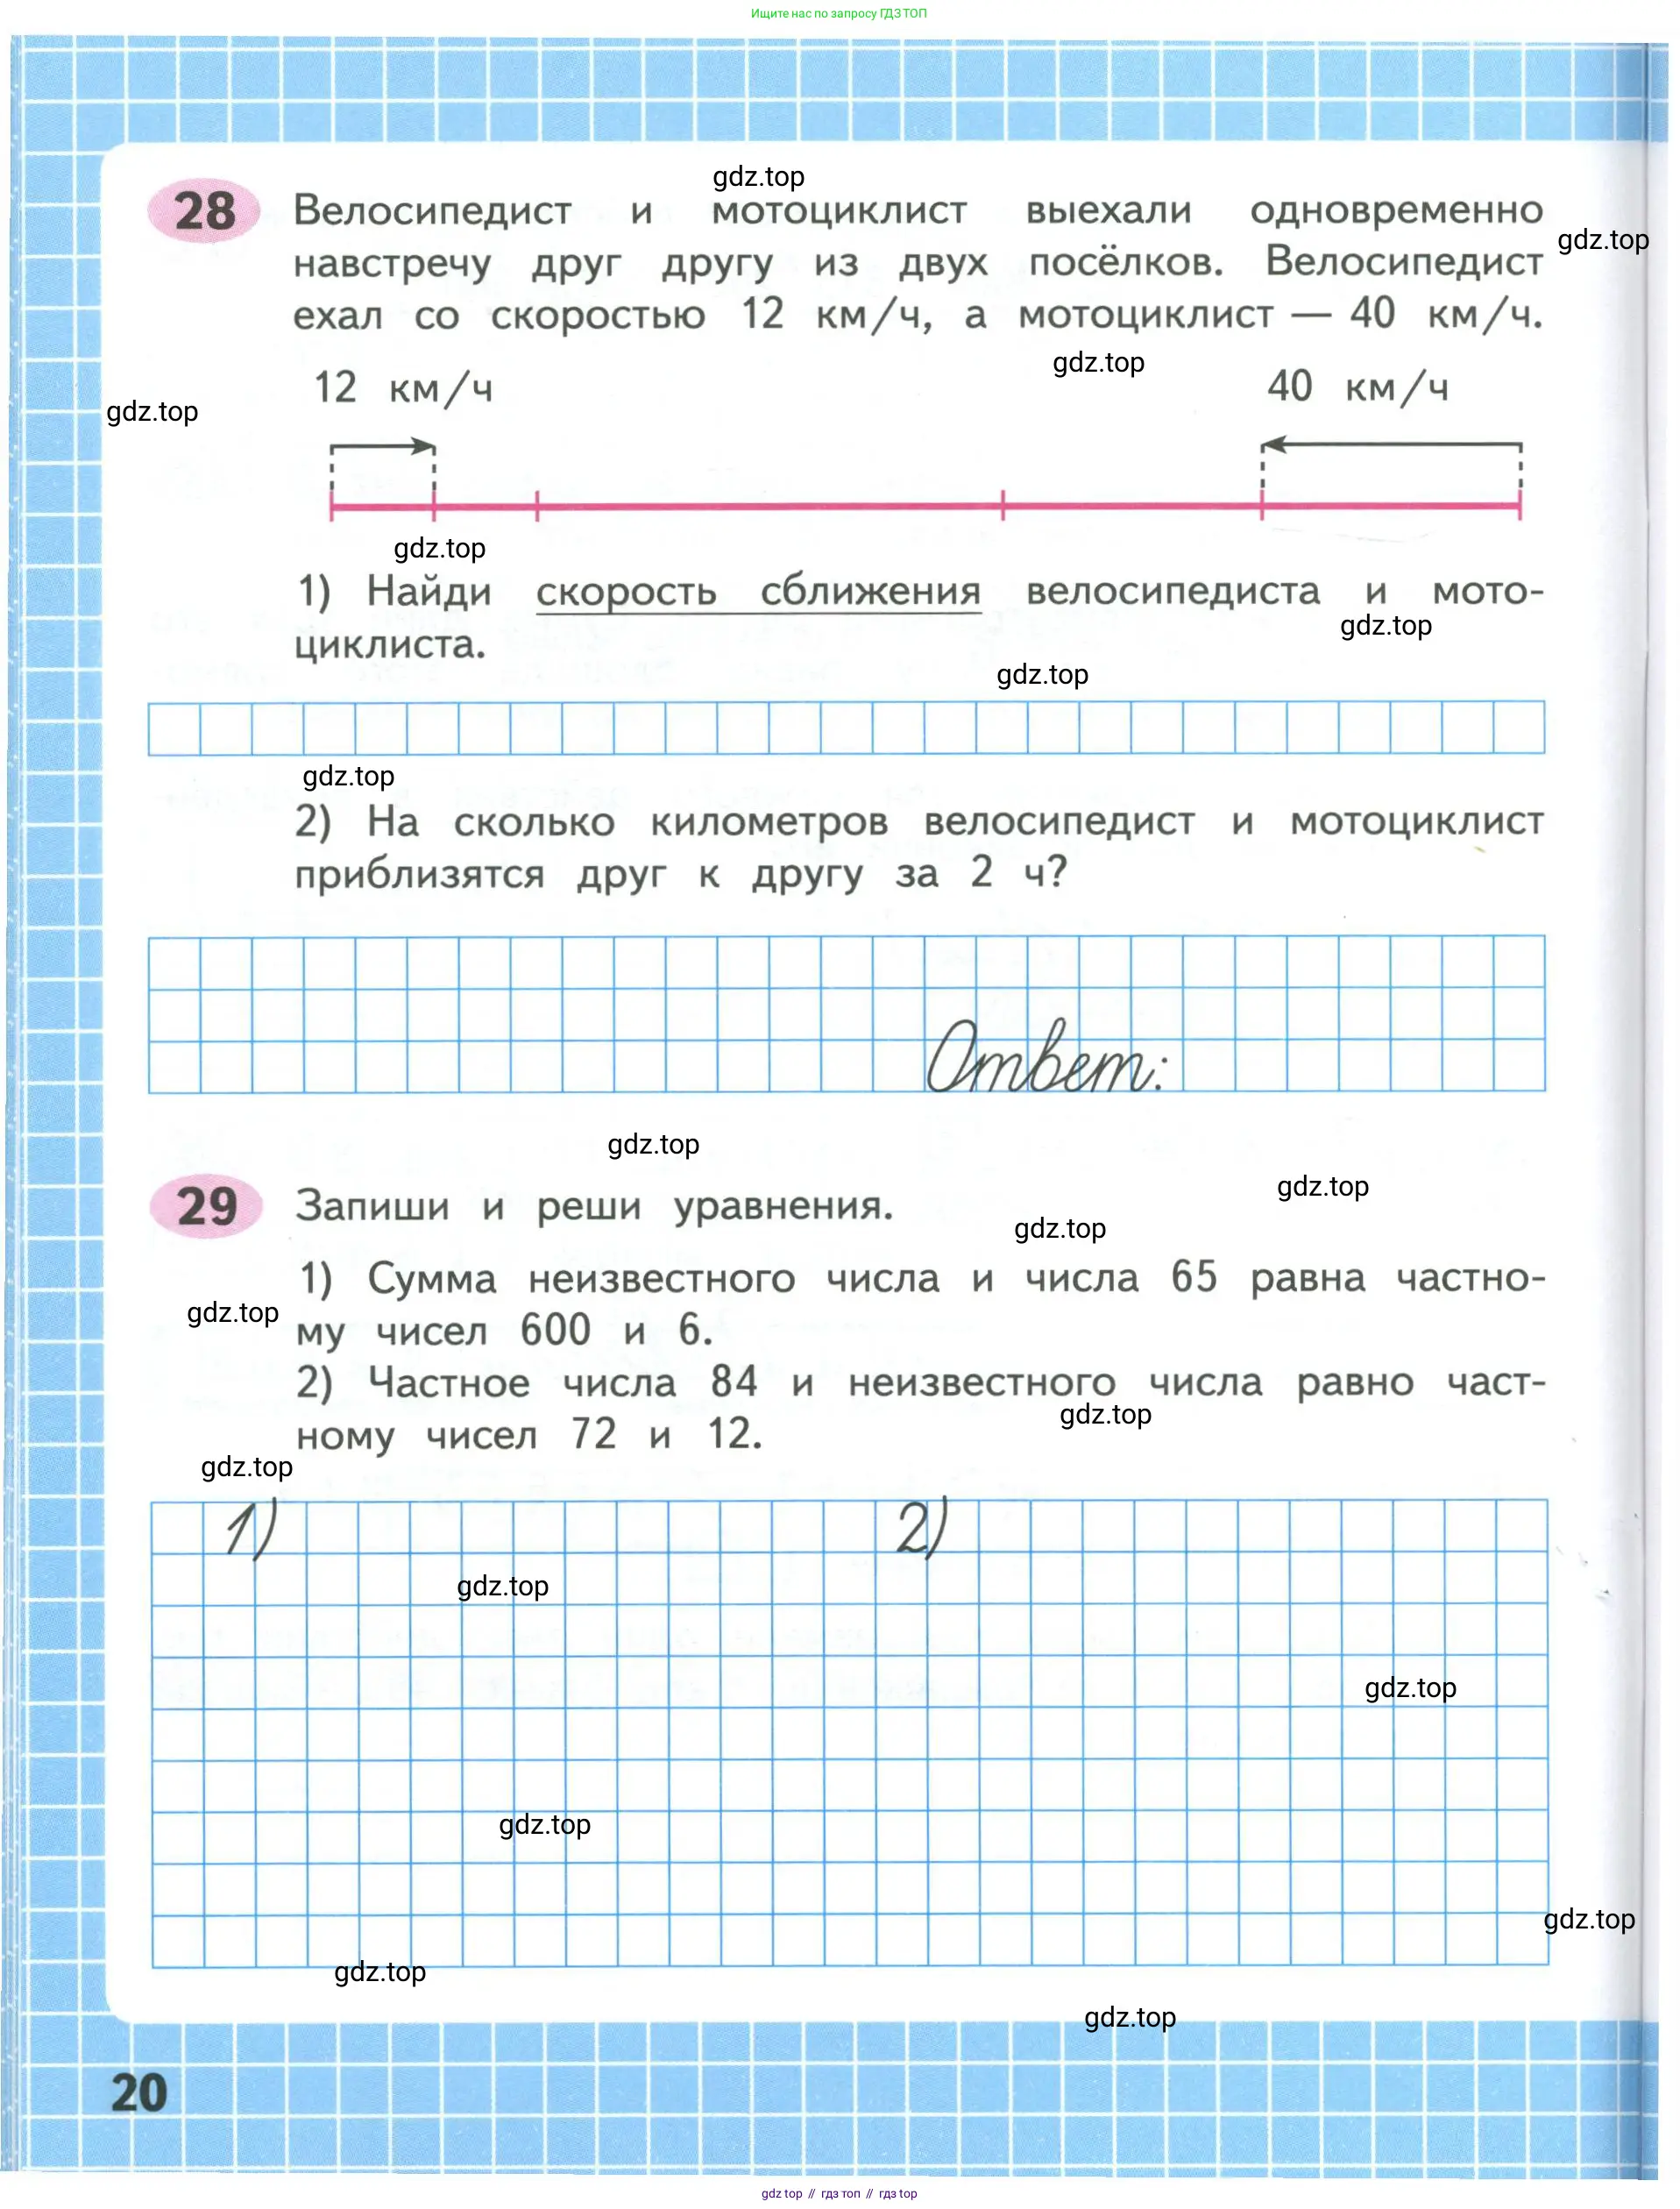 Ищите нас по запросу ГДЗ ТОП
gdz.top
28 Велосипедист и мотоциклист выехали одновременно
gdz.top
навстречу друг другу из двух посёлков. Велосипедист
ехал со скоростью 12 км/ч, а мотоциклист — 40 км/ч.
gdz.top
12 км/ч 40 км/ч
gdz.top
gdz.top
1) Найди скорость сближения велосипедиста и мото-
gdz.top
циклиста.
gdz.top
gdz.top
2) На сколько километров велосипедист и мотоциклист
приблизятся друг к другу за 2 ч?
Ответ:
gdz.top
gdz.top
29 Запиши и реши уравнения.
gdz.top
1) Сумма неизвестного числа и числа 65 равна частно-
gdz.top
му чисел 600 и 6.
2) Частное числа 84 и неизвестного числа равно част-
gdz.top
ному чисел 72 и 12.
gdz.top
1) 2)
gdz.top
gdz.top
gdz.top
gdz.top
gdz.top
gdz.top
20
gdz top // гдз топ // гдз top